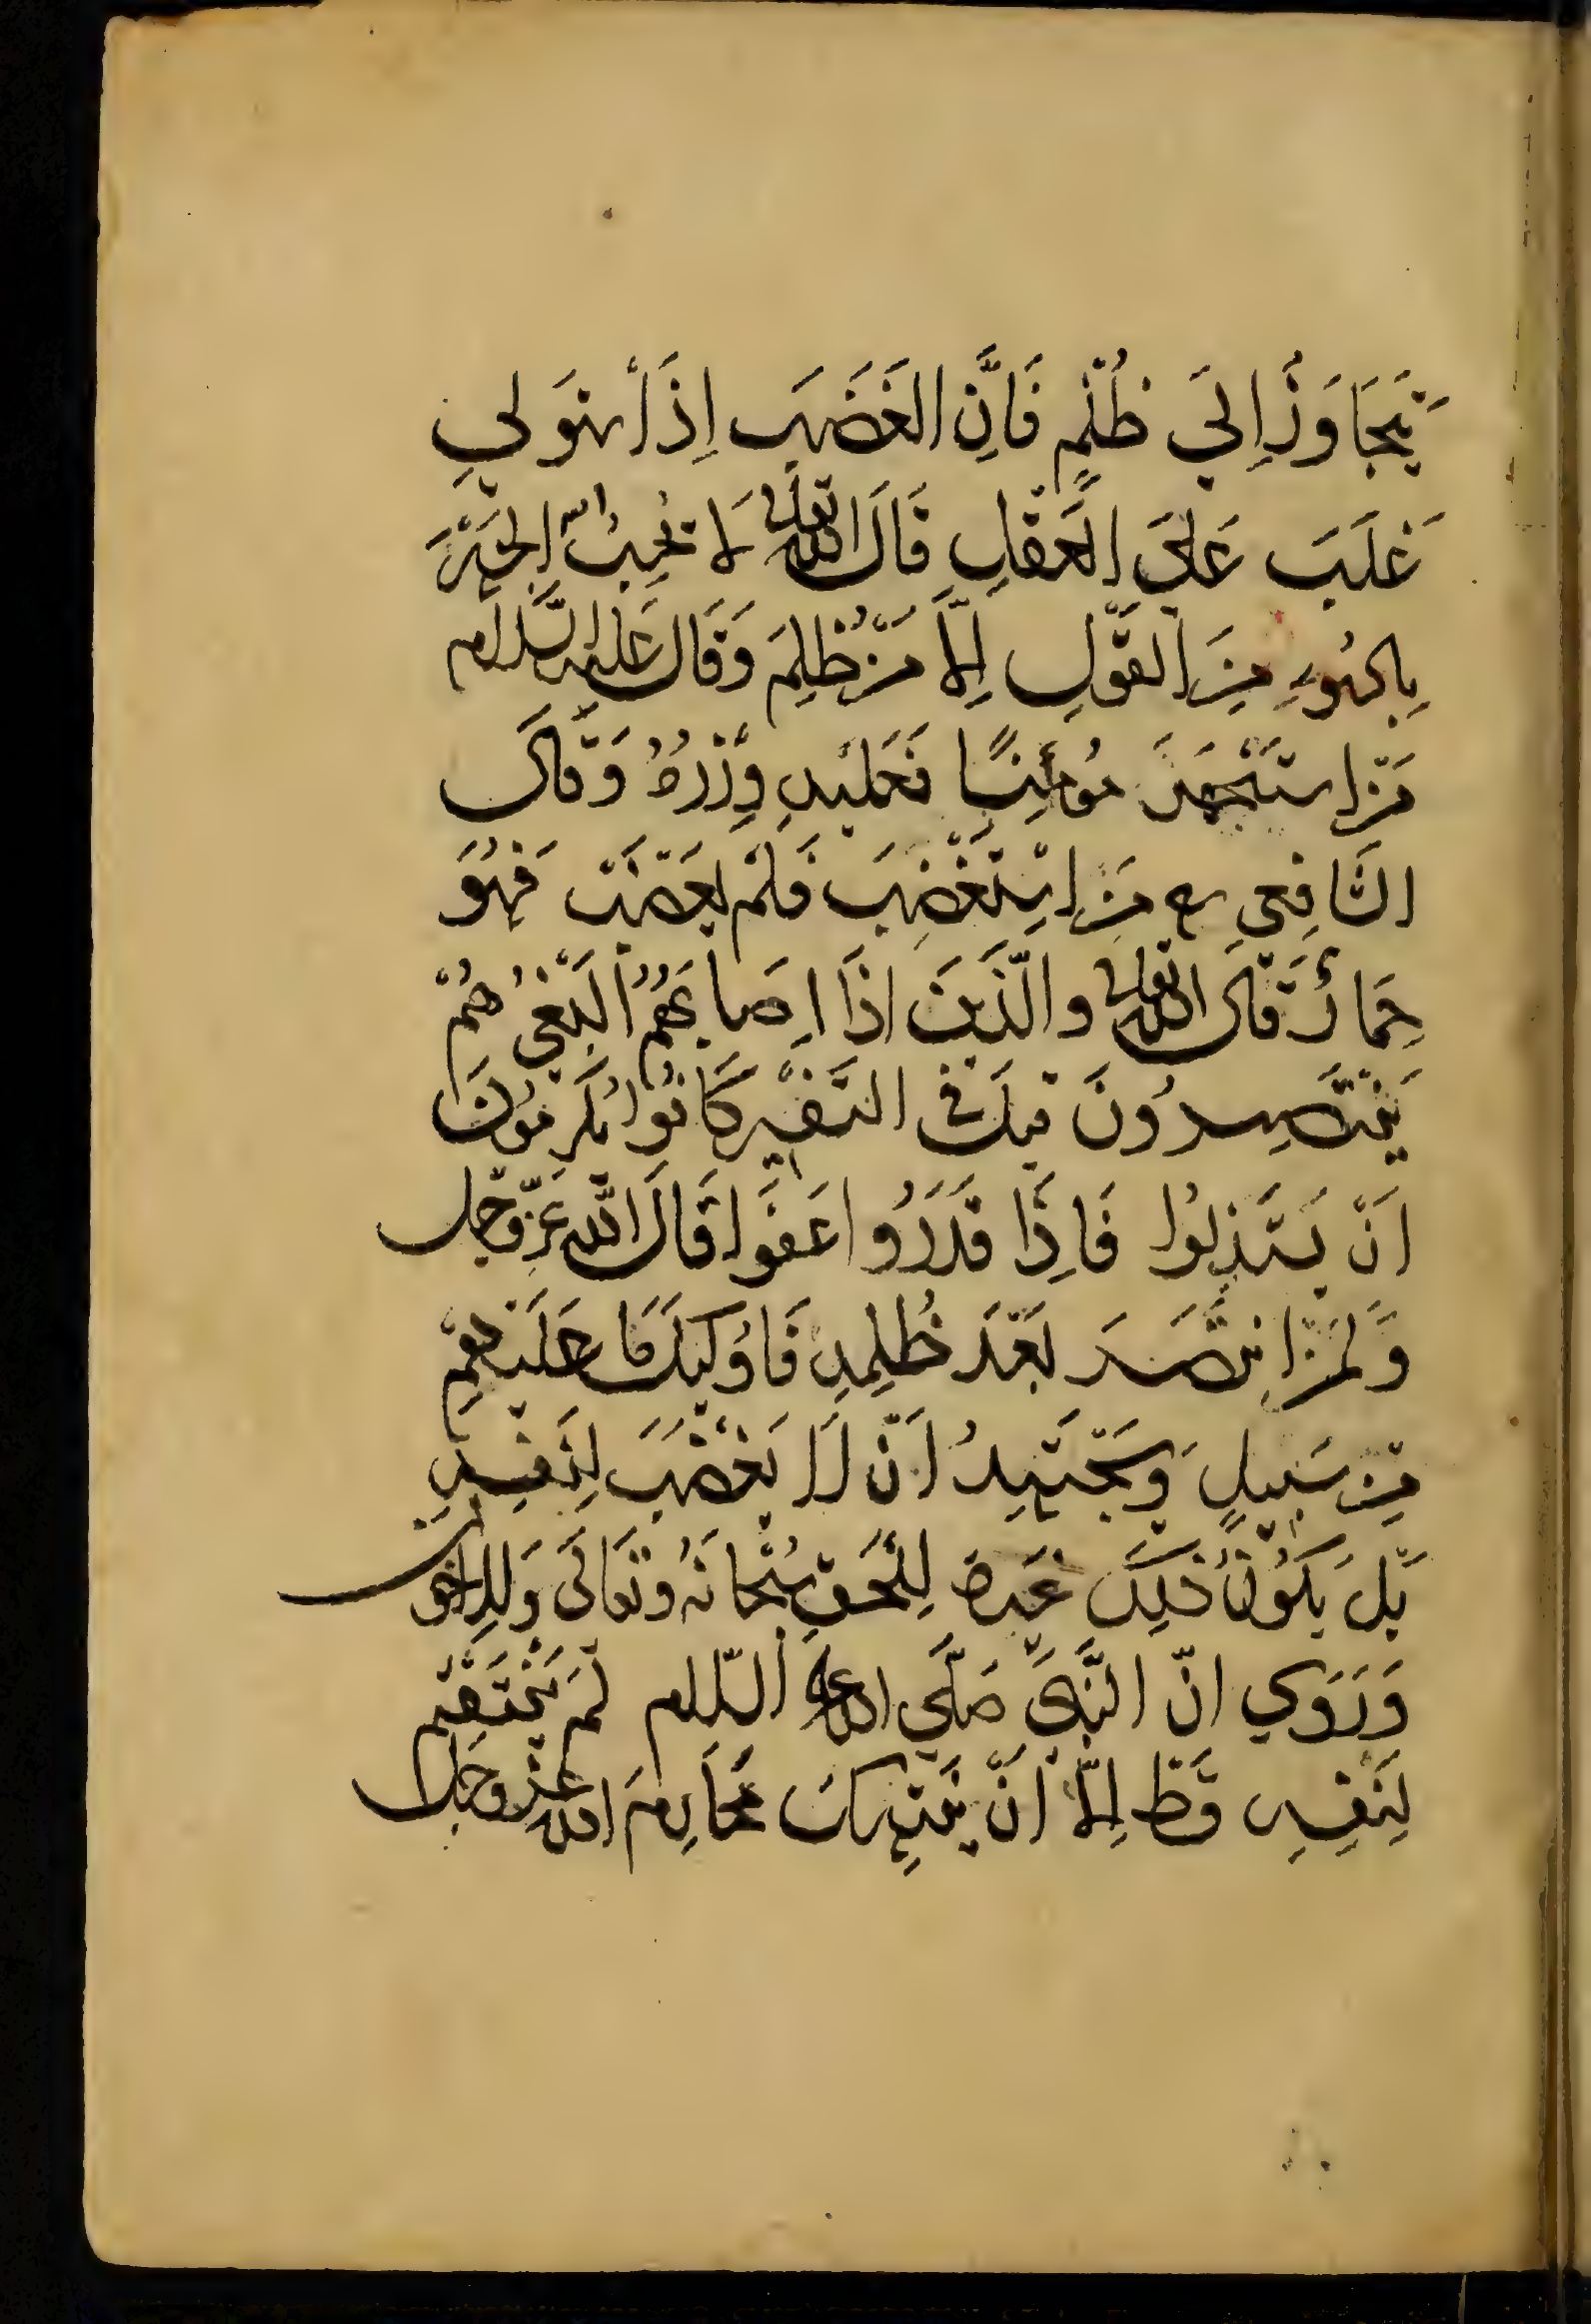 يَتَجَاوَزْ إِلَى ظُلْمٍ فَاِنَّ الغَضَبَ اِذَا سْتَوَلى
غَلَبَ عَلَى العَقْلِ قَالَ الله تعالى لَا يُحِبُّ اللهُ الجَهْرَ
بِالسُّوءِ مِنَ القَوْلِ اِلَّا مَنْ ظُلِمَ وَقَالَ عَليه السَّلام
مَنْ اسْتَجْهَلَ مُؤمِنًا فَعَلَيْهِ وِزْرُهُ وَقَالَ
الشَّافِعِي رح مَنِ اسْتُغْضِبَ فَلَمْ يَغْضَبْ فَهُوَ
حِمَارٌ قَالَ الله تعالى وَالَّذَينَ اذَا اَصَابَهُمُ البَغْيُ هُمْ
يَنْتَصِرُونَ قيلَ في التَّفْسِيرِ كَانُوا يَكْرَهُونَ
اَنْ يُسْتَذِلُوا فَاِذَا قَدَرُوا عَفَوا قَالَ اللّه عَزّوجَل
وَلَمَنْ اِنتَصَرَ بَعْدَ ظُلْمِهِ فَاُولَئِكَ مَا عَلَيْهِمْ
مِنْ سَبِيلٍ وَيَجْتَهِدُ اَنْ لَا يَغْضَبَ لِنَفْسِهِ
بَلْ يَكُوْنُ ذَلِكَ غَيرةً لِلْحَقِ سُبْحَانَهُ وتَعَالَى وَلِلاِخوان
وَرَوَي انّ النَّبِيَّ صَلَّى الله عليه السّلام لَمْ يَنْتَقِمْ
لِنَفْسِهِ قَطْ اِلَّا اَنْ يَنْتَهِكَ مَحَارِمَ الله عزوجَل